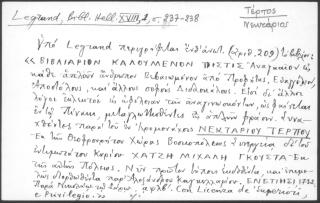 Legrand, Bibl. Hell. XVIII, 2, σ. 237-238
Τέρπος
Νεκτάριος
Ὑπό Legrand περιγράφεται (ἀριθ. 209)
« ΒΙΒΛΙΑΡΙΟΝ ΚΑΛΟΥΜΕΝΟΝ ΠΙΣΤΙΣ Ἀναγκαῖον εἰς
κάθε ἁπλοῦν ἄνθρωπον Βεβαιωμένον ἀπό Προφήτας, Εὐαγγέλιον,
Ἀποστόλους, καί ἄλλους σοφούς Διδασκάλους. Εἰσί δέ ἄλλοι
λόγοι εἰς ὠφέλειαν τῶν ἀναγινωσκόντων, ὡς φαίνεται
ἐν τῷ Πίνακι, μεταγλωττισθέντες εἰς ἁπλῆν φράσιν. Συνα-
χθέντες παρά τοῦ ἐν ἱερομονάχοις ΝΕΚΤΑΡΙΟΥ ΤΕΡΠΟΥ
Ἐκ τῆς Θεοφρουρήτου Χώρας Βοσκοπόλεως
ἐντιμοτάτου Κυρίου ΧΑΤΖΗ ΜΙΧΑΛΗ ΓΚΟΥΣΤΑ Ἐκ
τῆς αὐτῆς Πόλεως. Νῦν πρῶτον τύποις ἐκδοθέντα, καί ἐπιμε-
λῶς διορθωθέντα παρ' Ἀλεξάνδρου Καγκελλαρίου. ΕΝΕΤΙΗΣΙ 1732
Παρά Νικολάῳ αψλβ'. Con Licenza de' Superiori,
e Privilegio. »